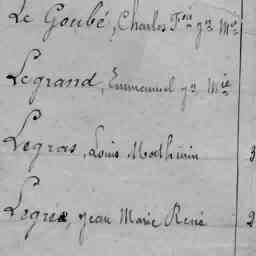 Le Goubé, Charles Fçois ya Mie
Legrand, Emmanuel ya Mie
Legras, Louis Mathurin 3
Legrée, Jean Marie René 2